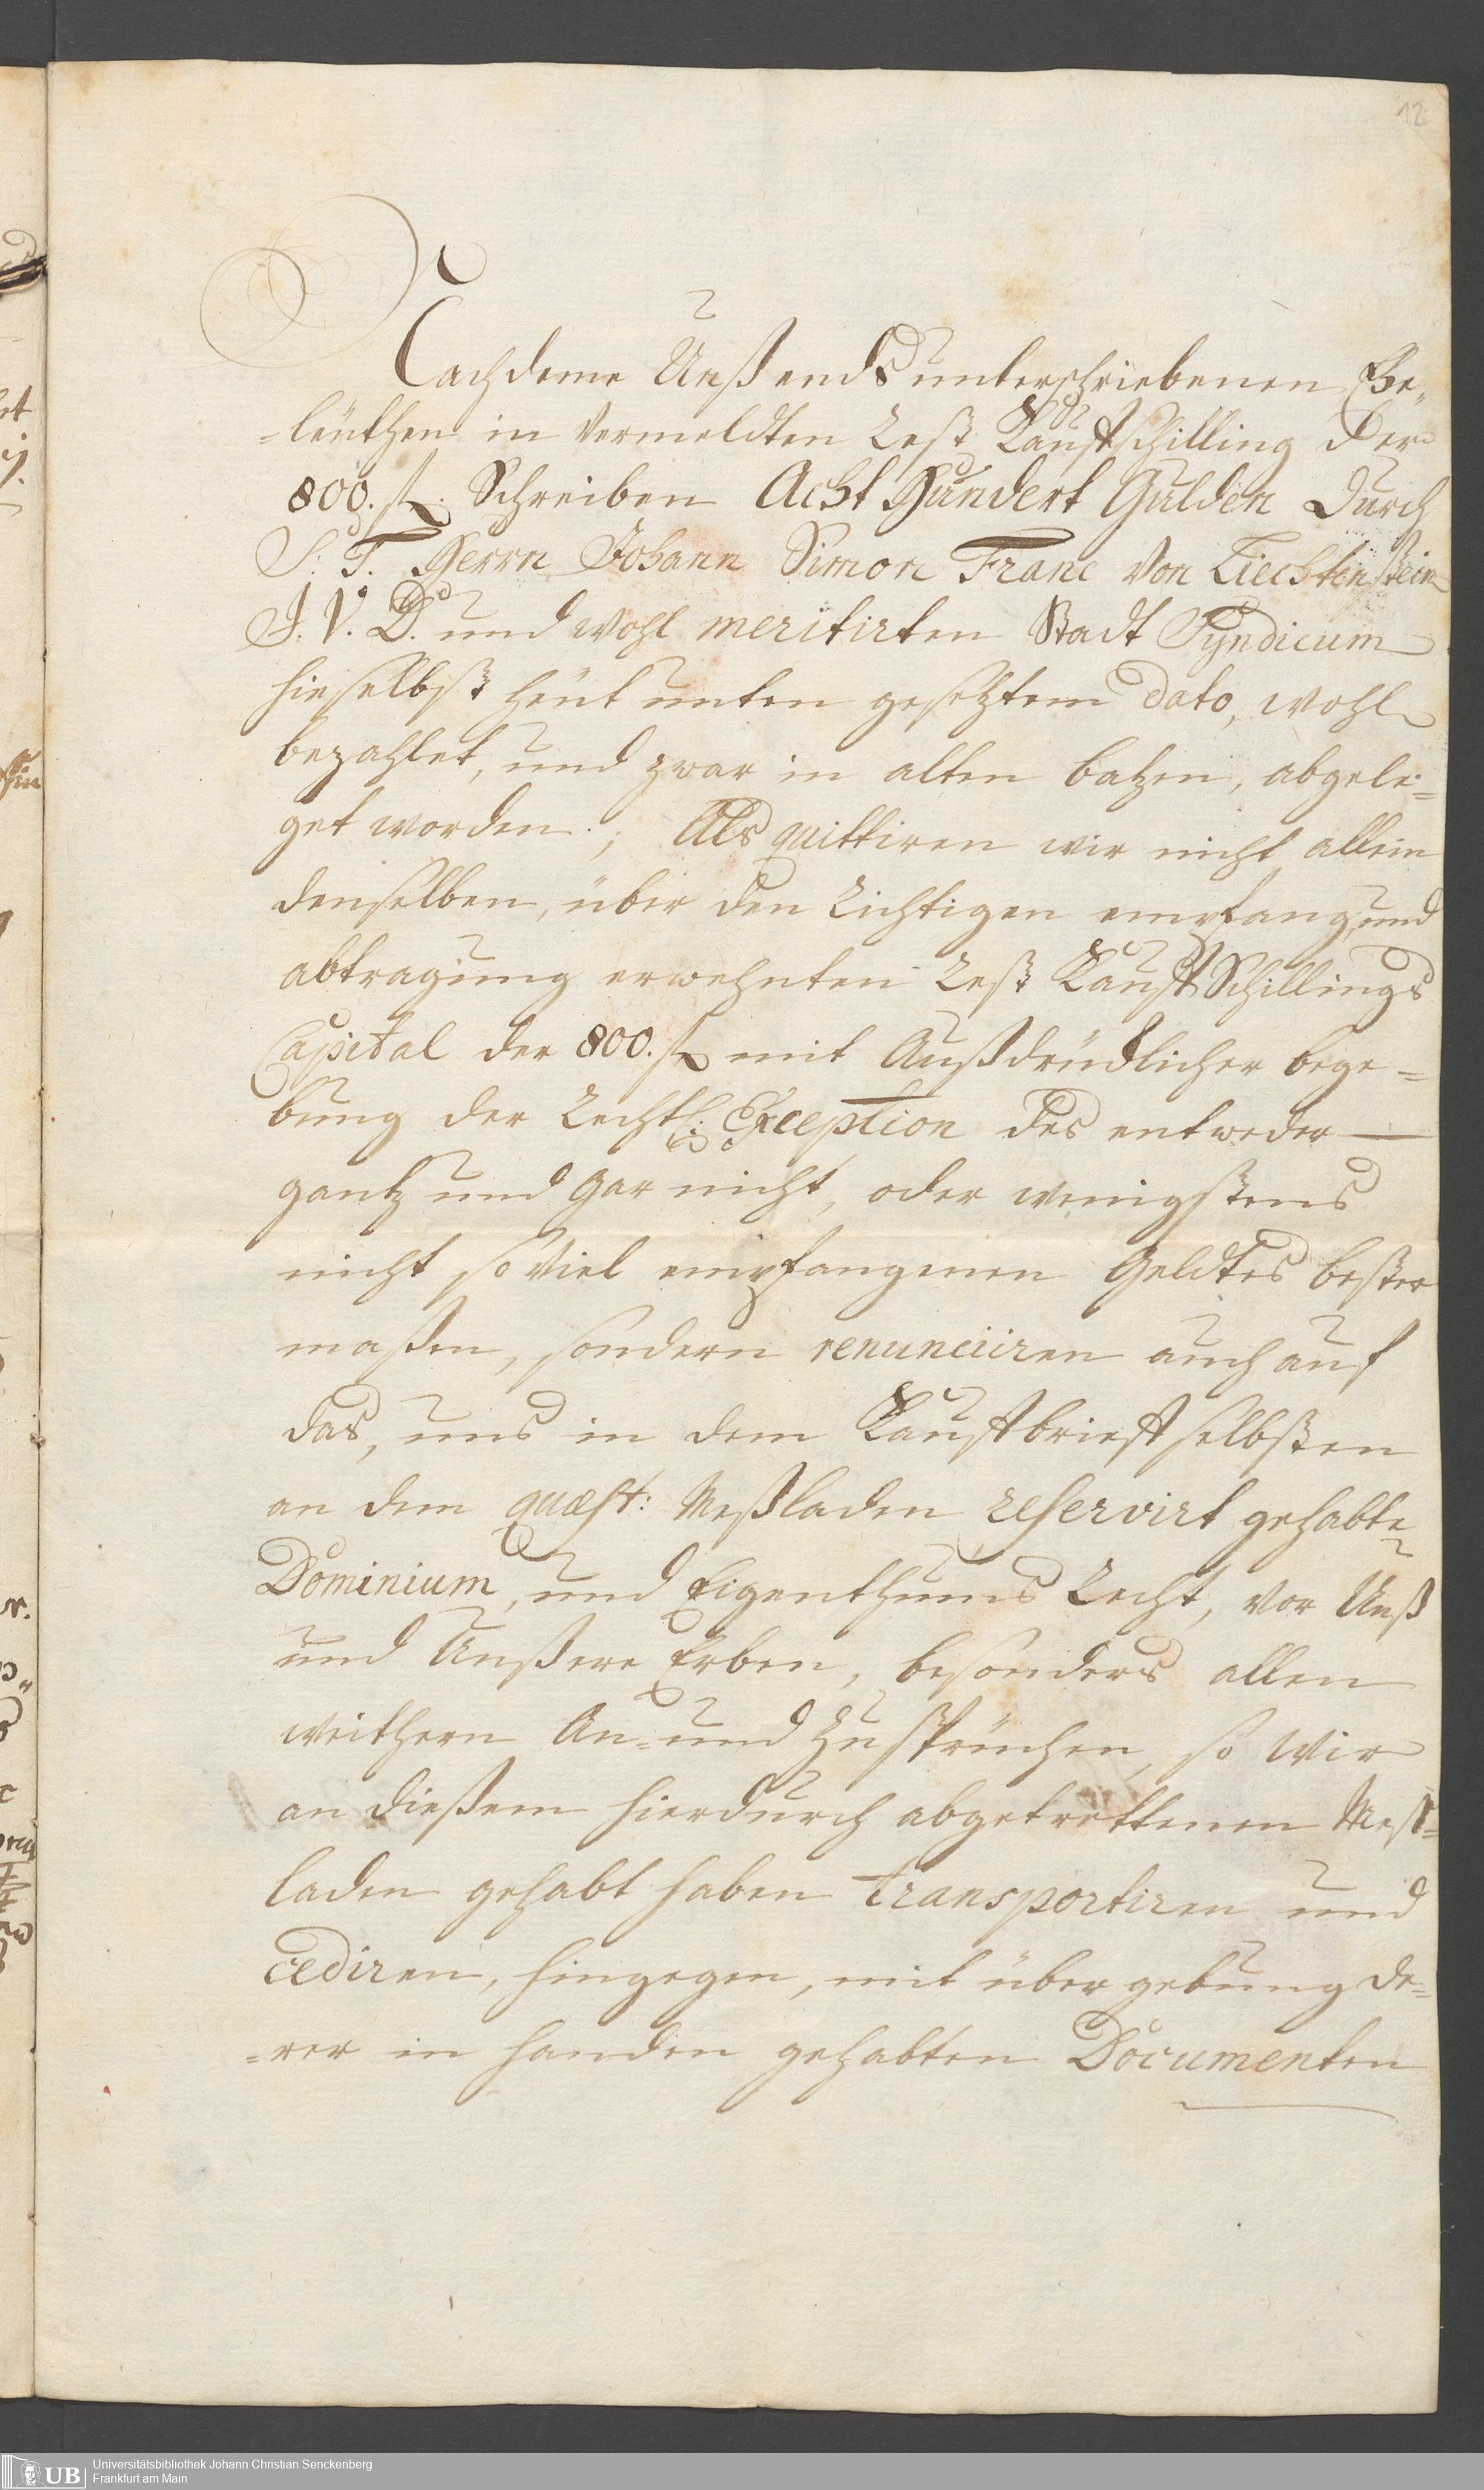 12.
Nachdeme Unß ends unterschriebenen Ehe„
=leüthen in vermeldten Rest Kauffschilling der
800. fl. Schreiben Acht Hundert Gulden durch
S: T. Herrn Johann Simon Franc von Liechtenstein
J. V. D. und wohl meritirten Stadt Syndicum
hieselbst heüt unten gesetztem dato, wohl
bezahlet, und zwar in alten batzen, abgele=
get worden; Als quittiren wir nicht allein
denselben, über den Richtigen empfang und
abtragung erwehnten Rest Kauff Schillings
Capital der 800. fl mit Außdrücklicher bege=
bung der Rechtl: Exception des entweder
gantz und gar nicht, oder wenigstens
nicht so viel empfangenen Geldtes bester
maßen, sondern renunciiren auch auf
das, uns in dem Kauffbrieff selbsten
an dem quæst: Meßladen reservirt gehabte
Dominium, und Eigenthums Recht, vor Unß
und Unßere Erben, besonders allen
weithern An= und Zusprüchen, so wir
an dießem hierdurch abgetrettenen Meß=
laden gehabt haben transportiren und
cediren, hingegen, mit übergebung de=
=rer in handen gehabten Documenten
UB Universitätsbibliothek Johann Christian Senckenberg
Frankfurt am Main